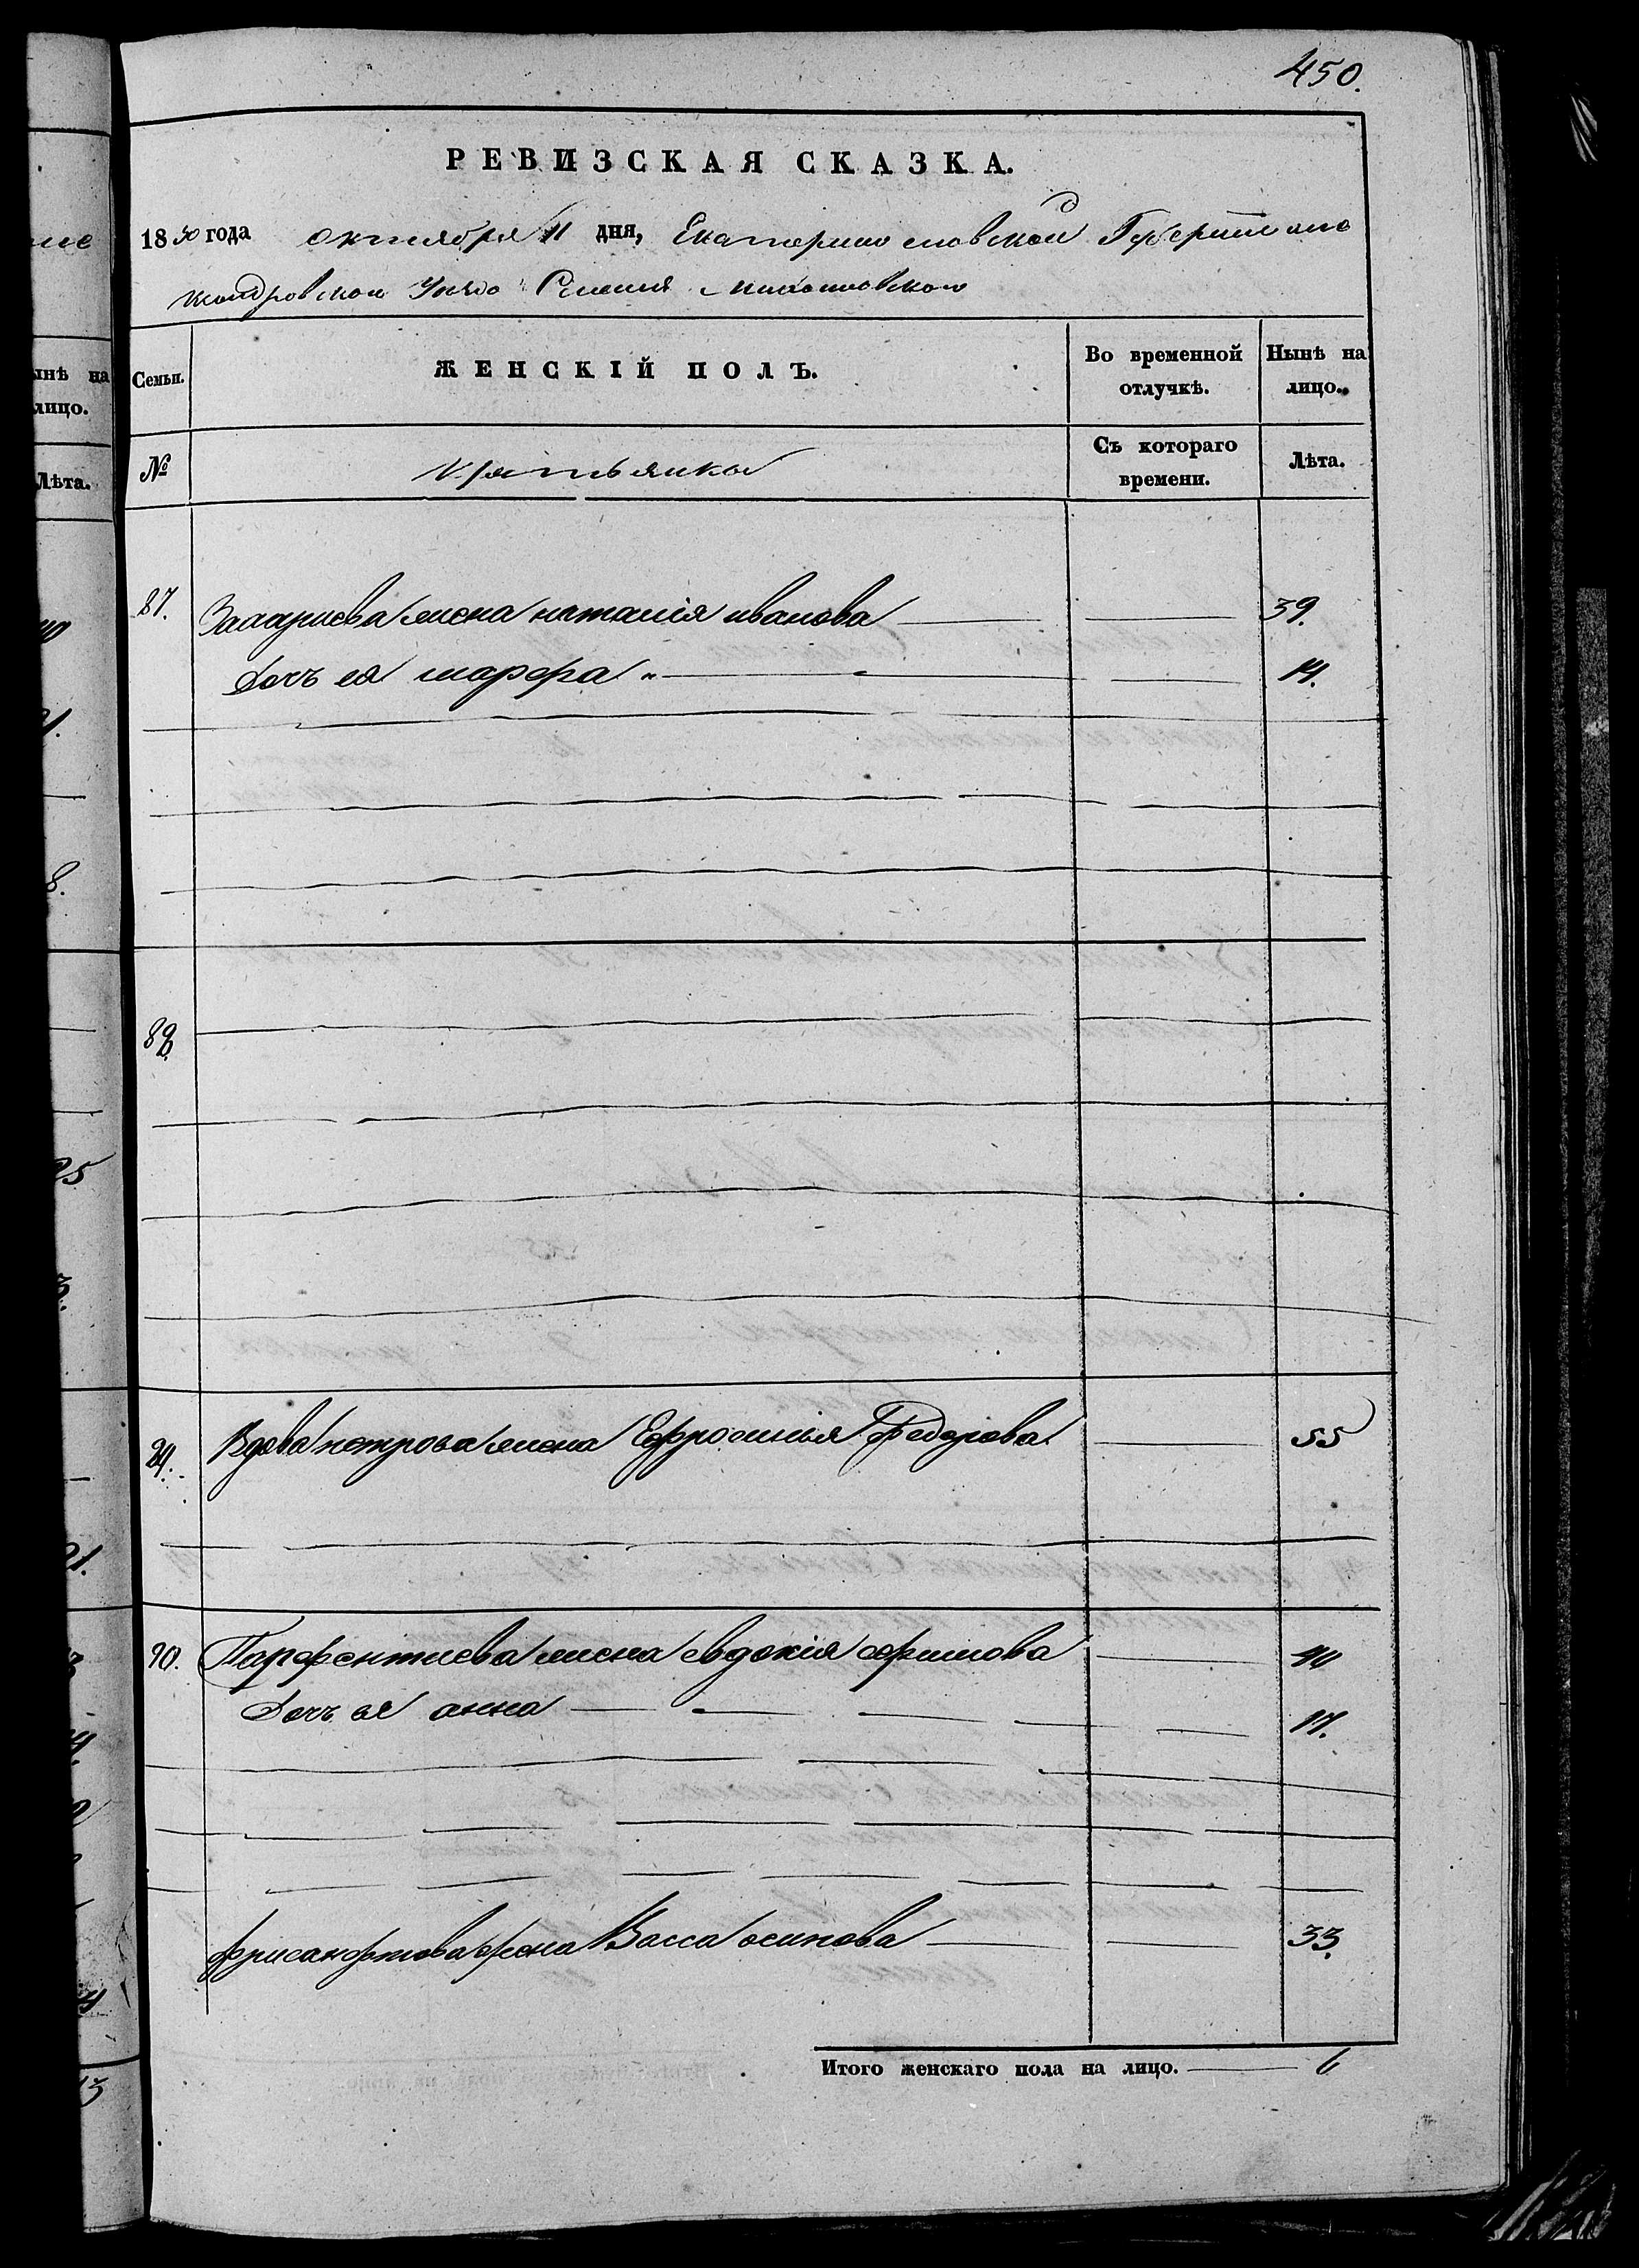 450.
РЕВИЗСКАЯ СКАЗКА.
1850 года октября 11 дня, Екатеринославской Губернии але
ксандровского Уезда Селения
Семьи. ЖЕНСКІЙ ПОЛЪ. Во временной отлучкѣ. Нынѣ на лицо.
№ крестьянка Съ котораго времени. Лѣта.
87. Захариева жена наталія иванова 39.
дочь ея марфа 14.
88.
89. Вдова петрова жена Ефросинья Федорова 55
90. Парфентиева жена евдокія ефимова 44
дочь ея анна 17.
жена Васса осипова 33.
Итого женскаго пола на лицо. 6